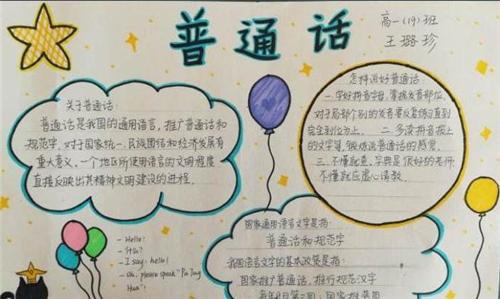 普通话
高一(19)班
王璐珍
关于普通话:
普通话是我国的通用语言,推广普通话和
规范字,对于国家统一、民族团结和经济发展有
重大意义。一个地区所使用语言的文明程度
直接反映出其精神文明建设的进程。
怎样说好普通话:
一.学好拼音字母,掌握发音部位。
对于局部个别的发音要反复练习直到
完全到位为止。二.多读拼音报上
的文字等,锻炼说普通话的感觉。
三.不懂就查,字典是很好的老师
不懂就应虚心请教。
- Hello!
- I say: hello!
- Oh, please speak "Pu Tong
Hua"!
国家通用语言文字是指:
普通话和规范字
我国语言文字的基本政策是指:
国家推广普通话,推行规范汉字